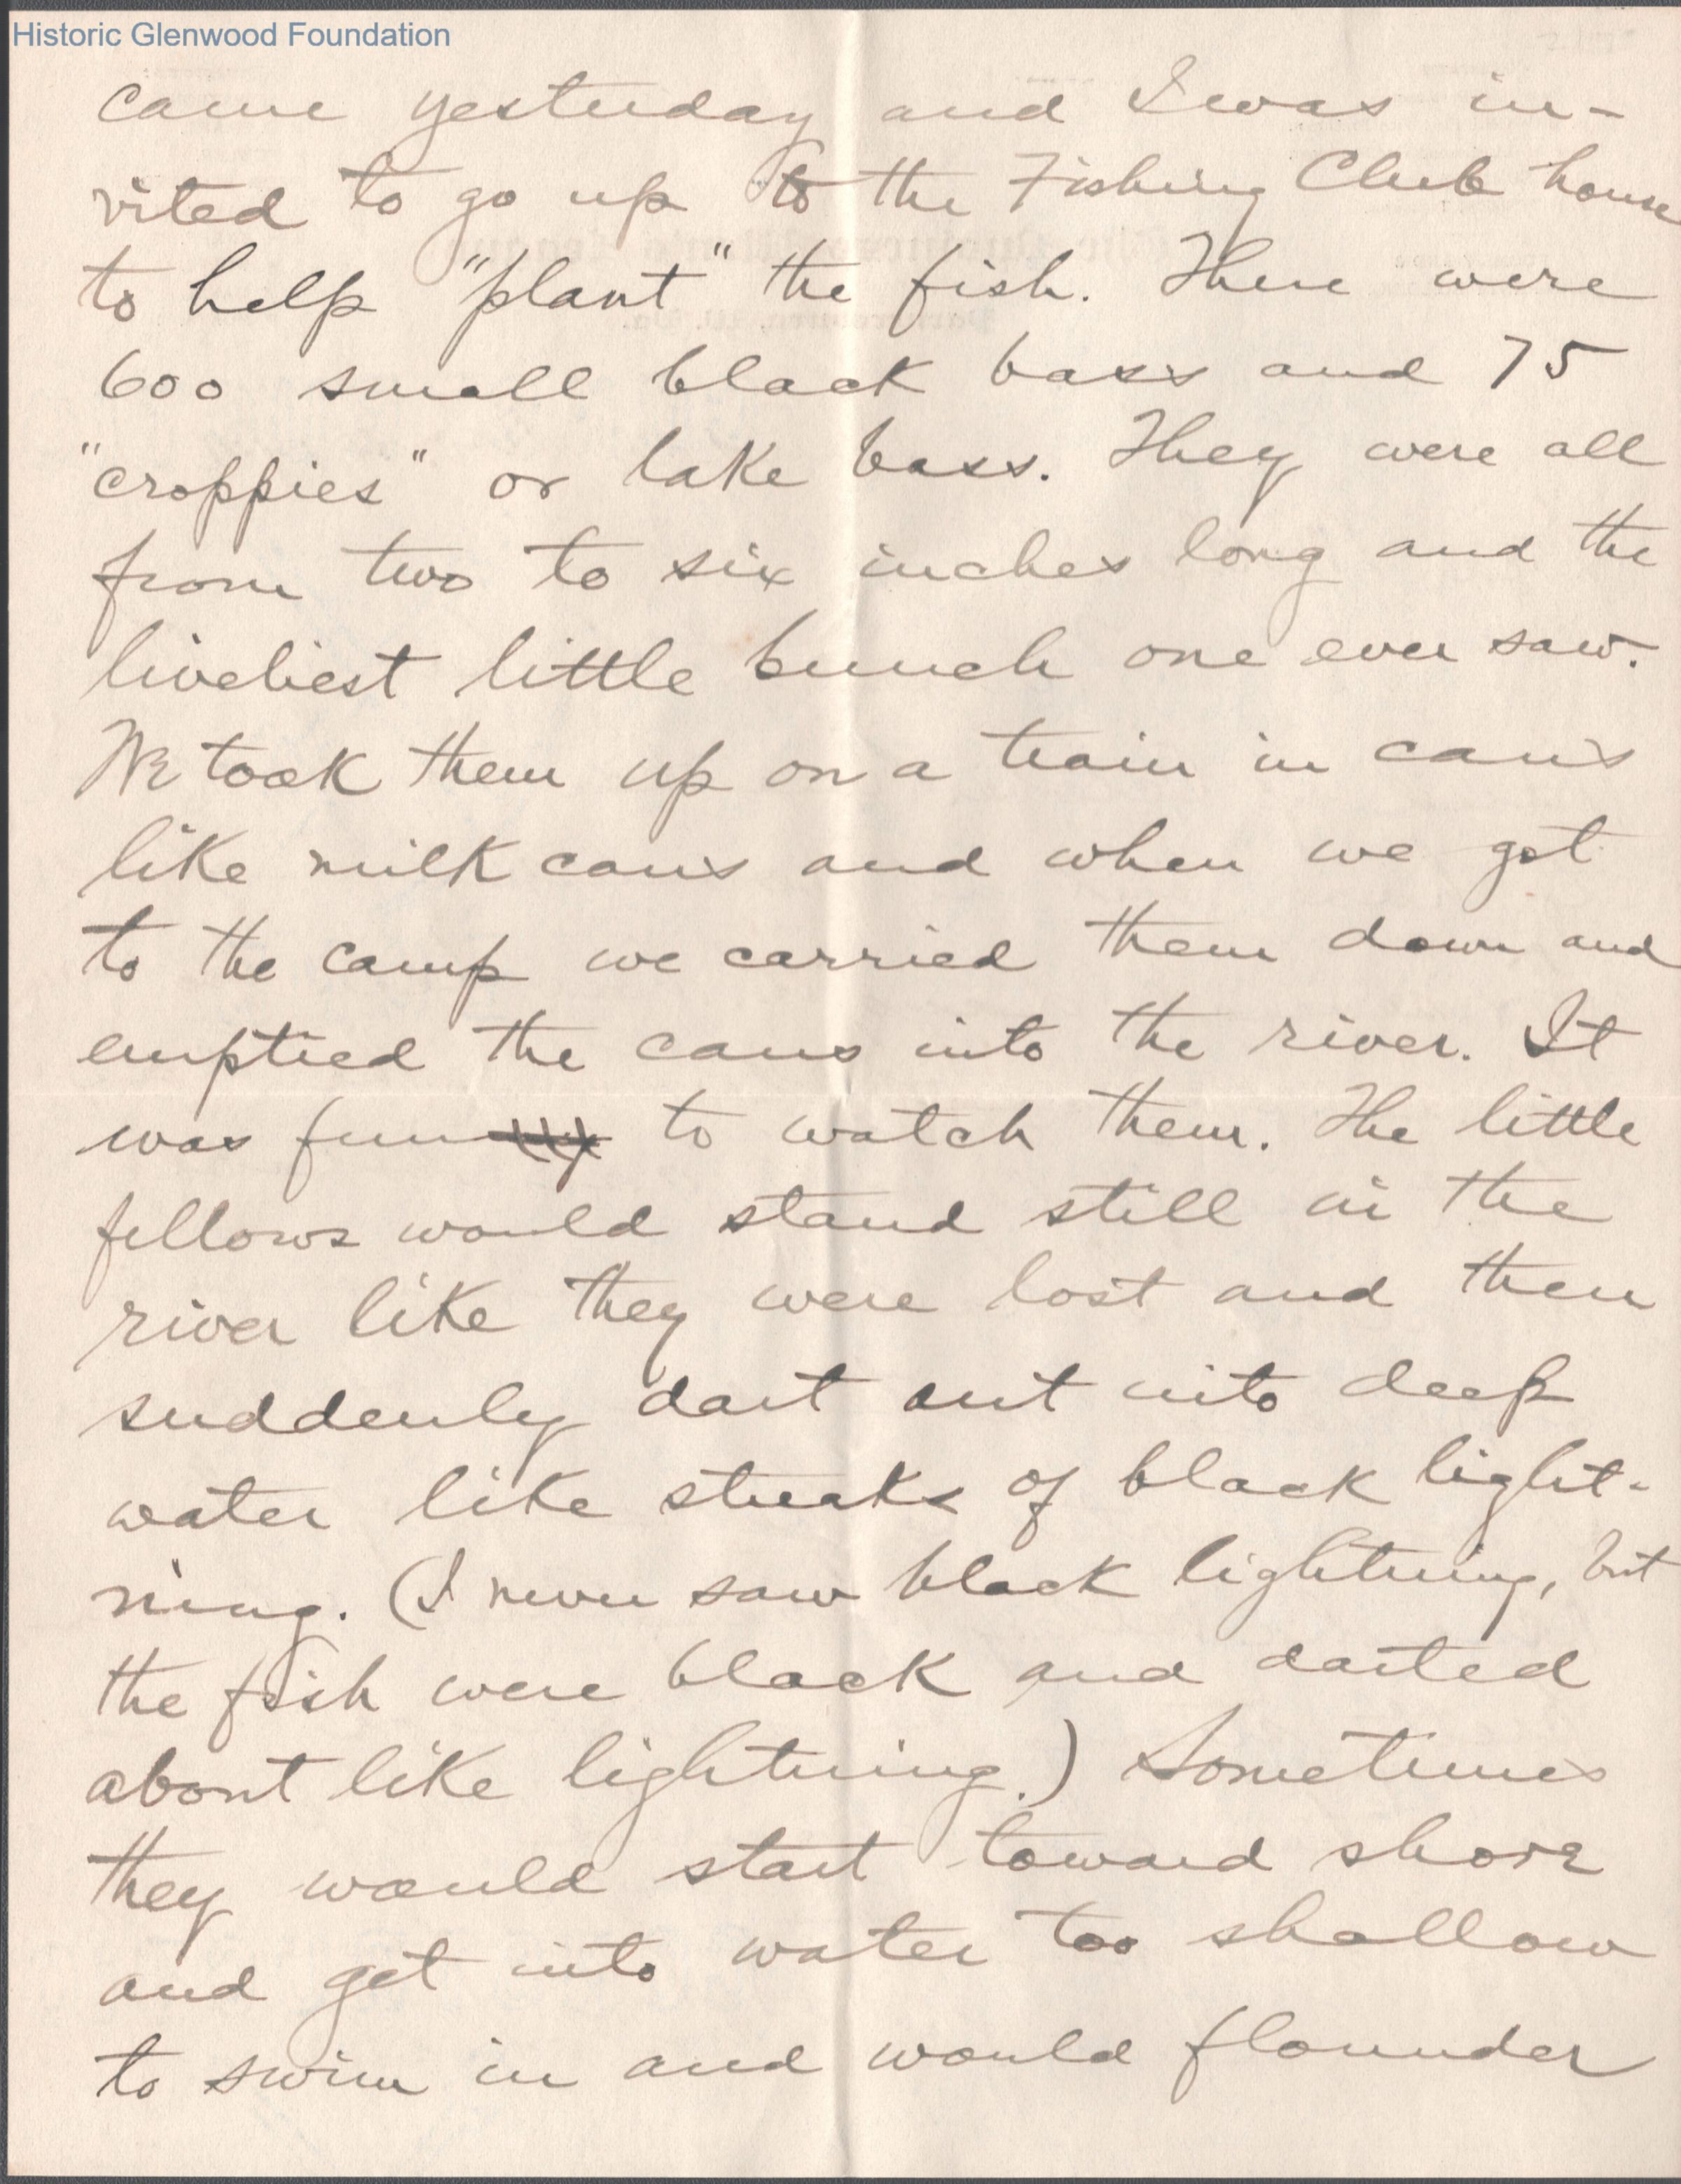 Historic Glenwood Foundation
came yesterday and I was in-
vited to go up to the Fishing Club house
to help "plant" the fish. There were
600 small black bass and 75
"croppies" or lake bass. They were all
from two to six inches long and the
liveliest little bunch one ever saw.
We took them up on a train in cans
like milk cans and when we got
to the camp we carried them down and
emptied the cans into the river. It
was fun to watch them. The little
fellows would stand still in the
river like they were lost and then
suddenly dart out into deep
water like streaks of black light-
ning. (I never saw black lightning, but
the fish were black and darted
about like lightning.) Sometimes
they would start toward shore
and get into water too shallow
to swim in and would flounder